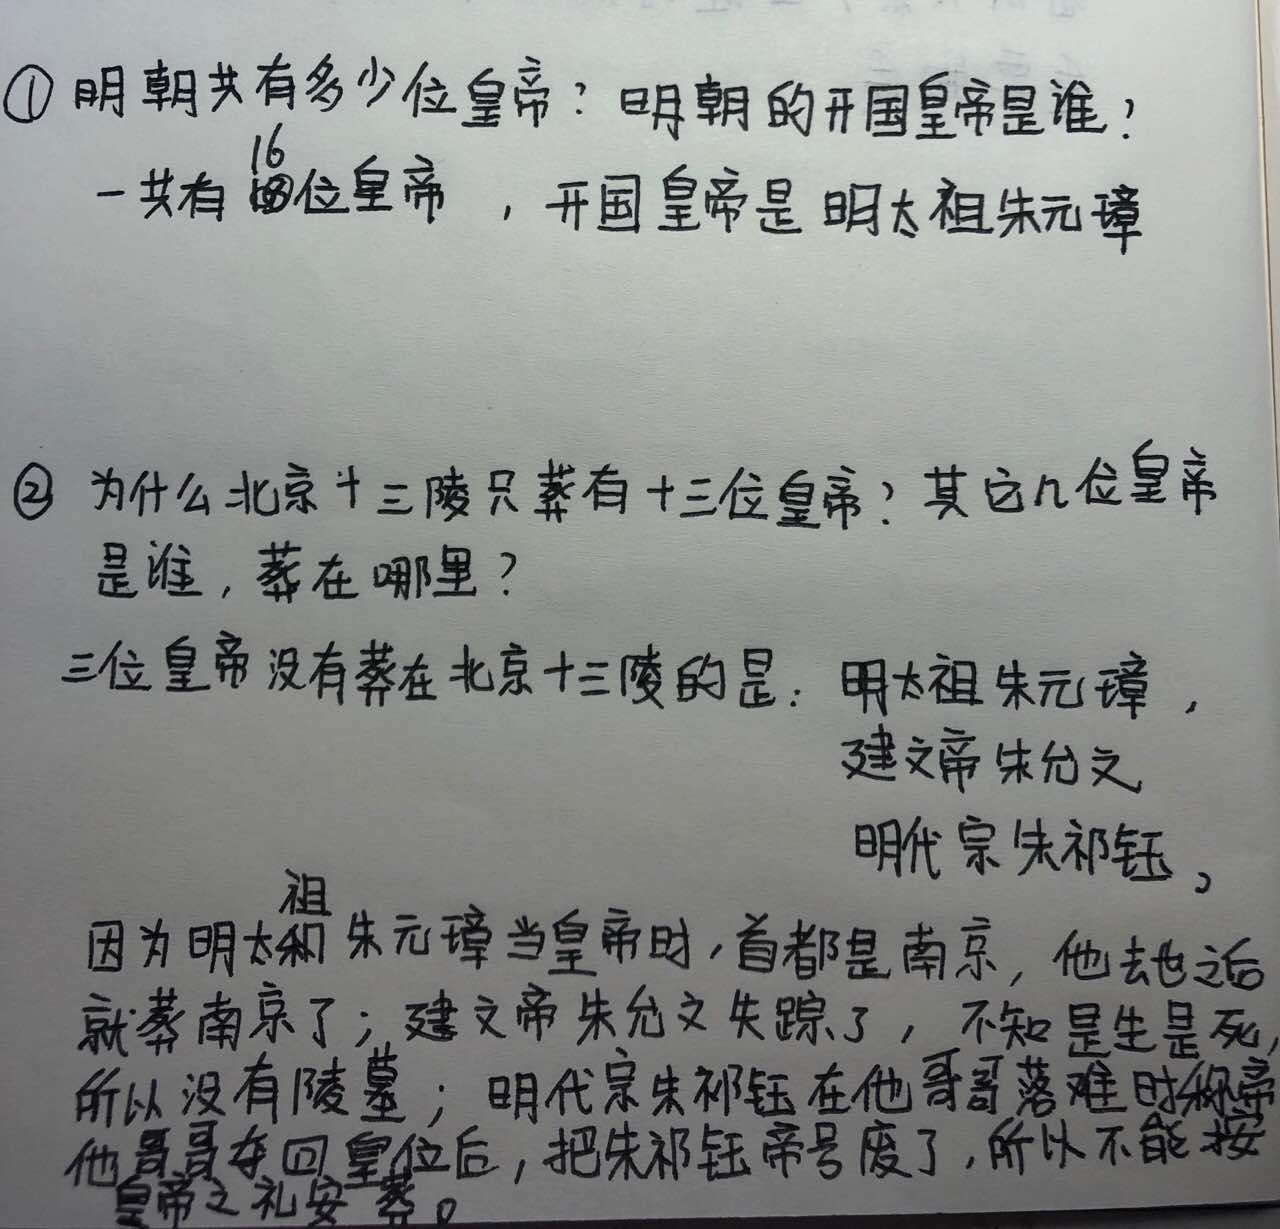 ① 明朝共有多少位皇帝？明朝的开国皇帝是谁？
16
一共有位皇帝，开国皇帝是明太祖朱元璋
② 为什么北京十三陵只葬有十三位皇帝？其它几位皇帝
是谁，葬在哪里？
三位皇帝没有葬在北京十三陵的是：明太祖朱元璋，
建文帝朱允文
明代宗朱祁钰。
祖
因为明太和朱元璋当皇帝时，首都是南京，他去世之后
就葬南京了；建文帝朱允文失踪了，不知是生是死，
所以没有陵墓；明代宗朱祁钰在他哥哥落难时称帝
他哥哥夺回皇位后，把朱祁钰帝号废了，所以不能按
皇帝之礼安葬。